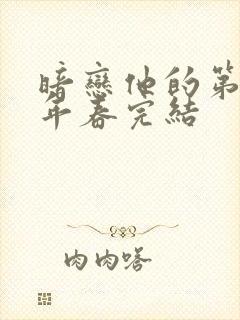 暗戀他的第
年春完結
肉肉嗒